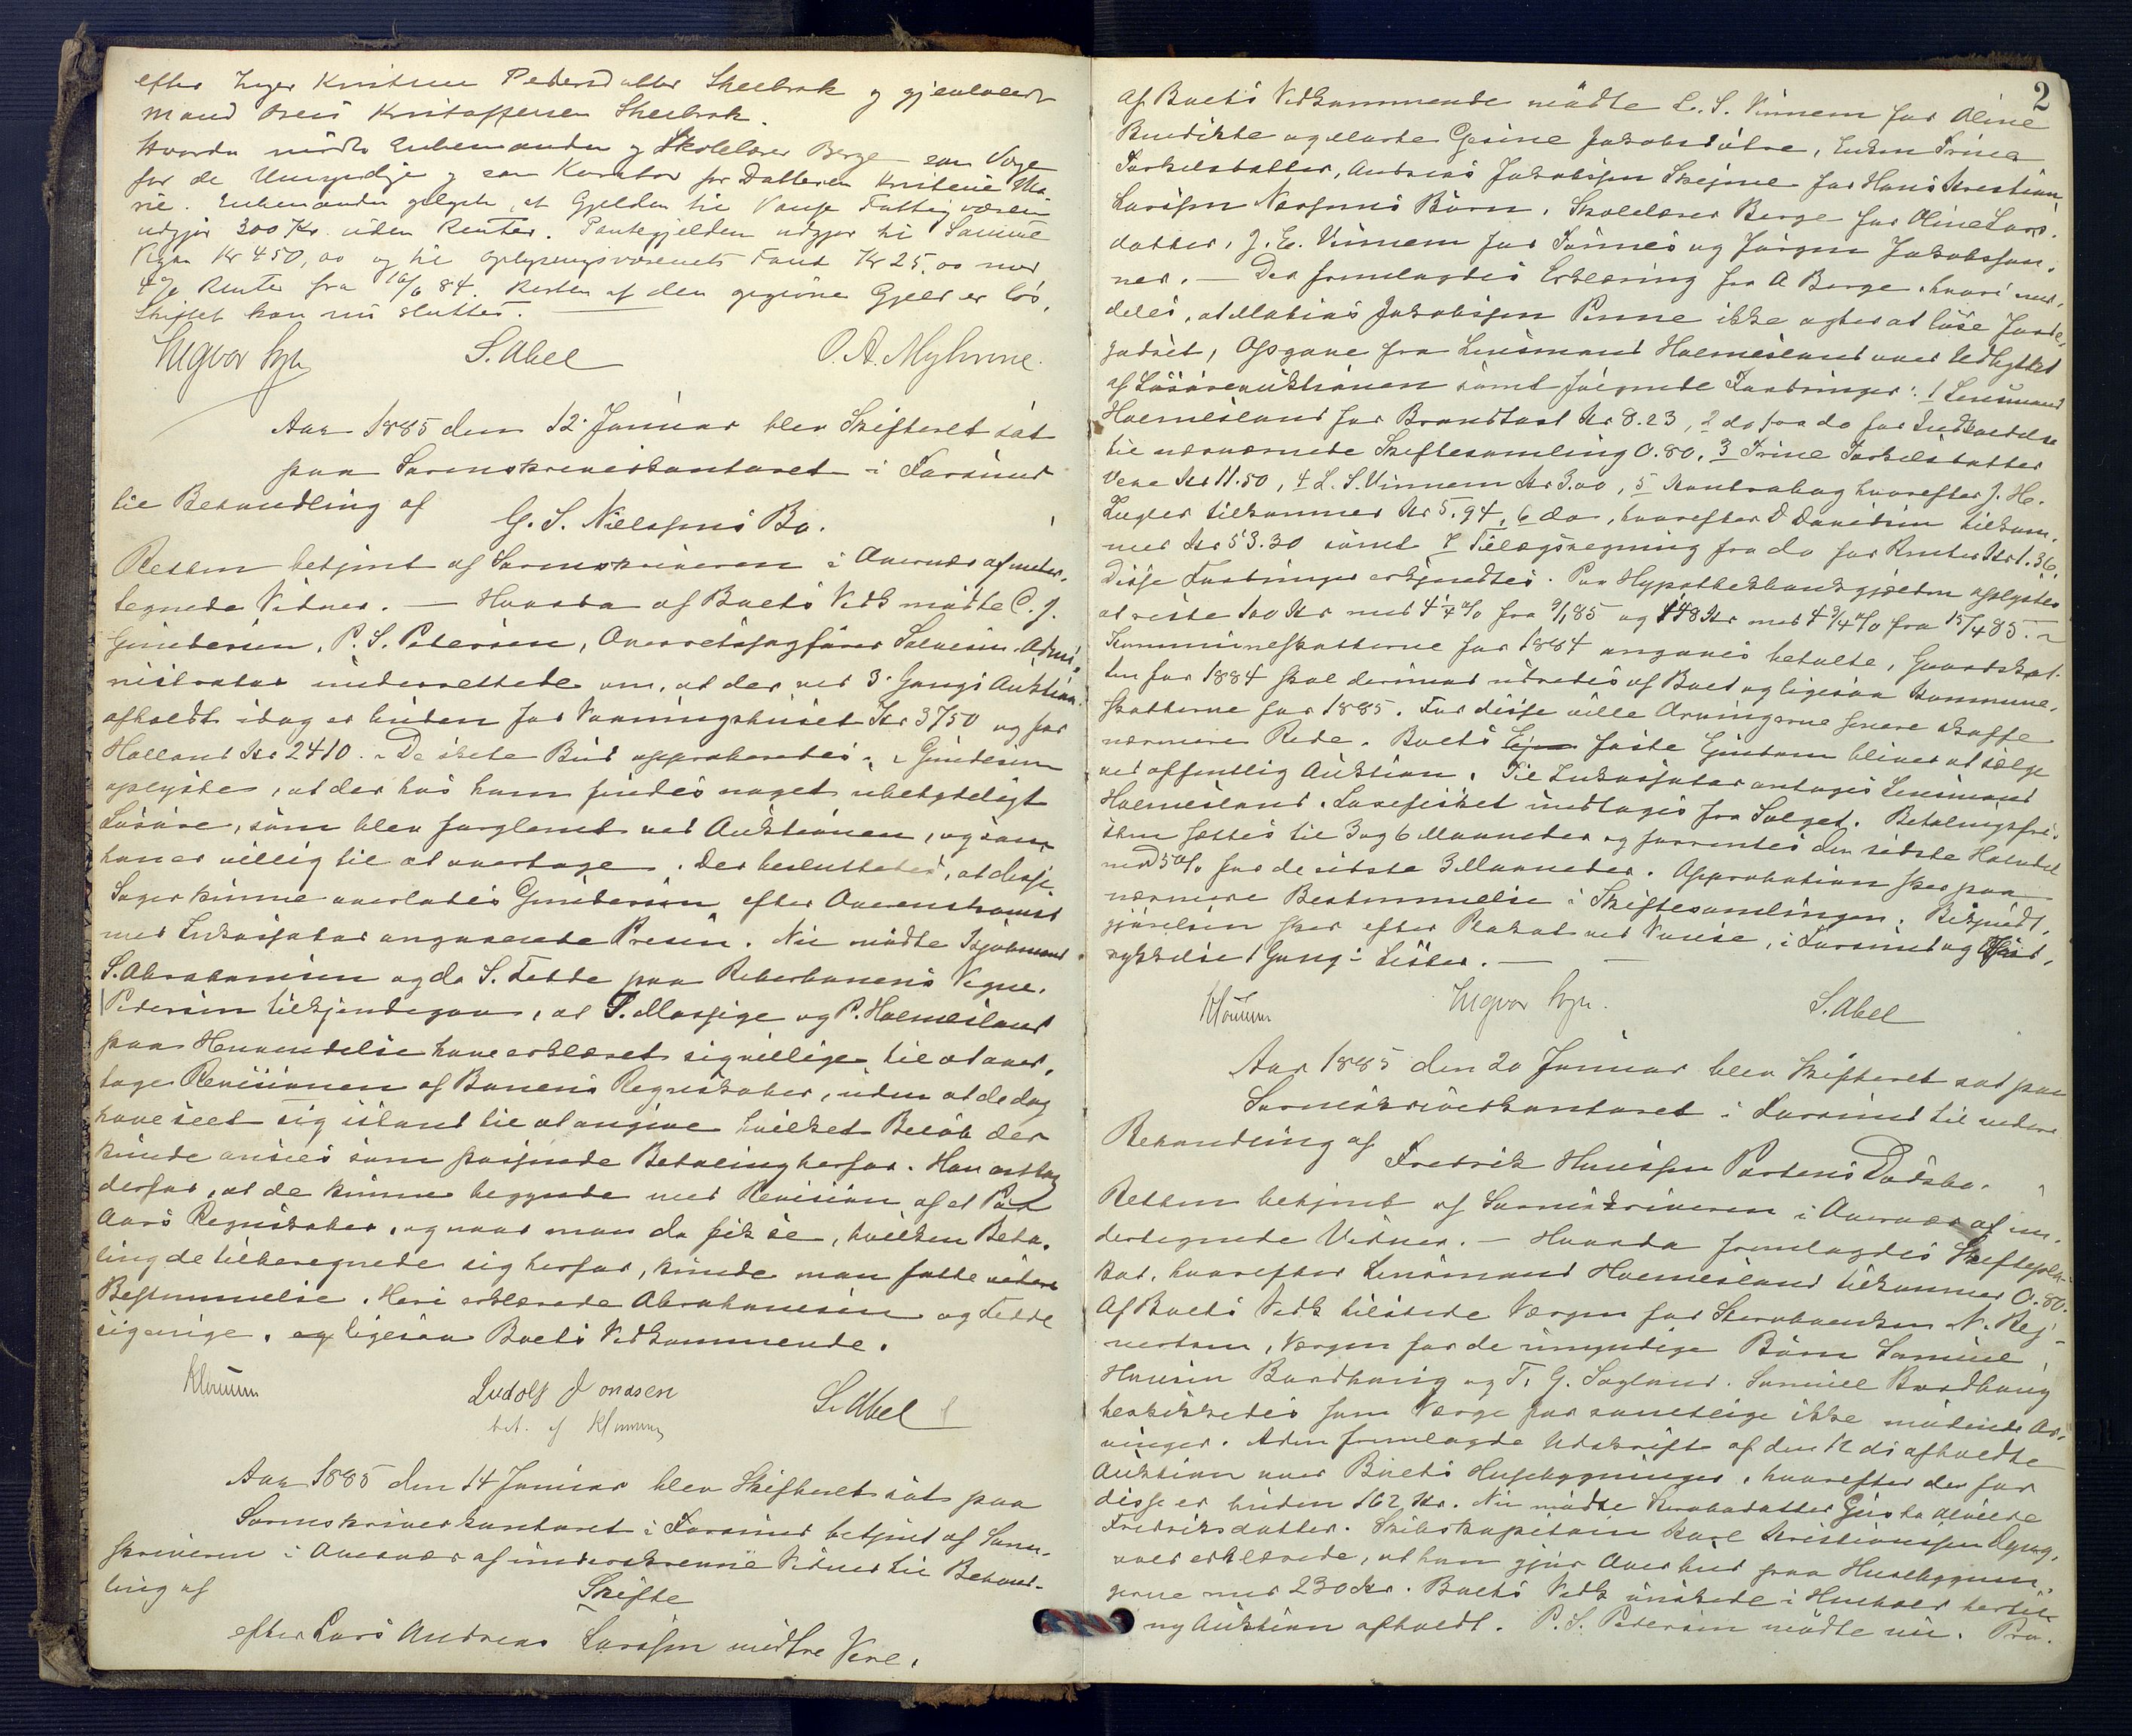 efter Inger Kirstine Pedersdatter Skeibrok og gjenlevende
Mand Kristoffersen Skeibrok.
Hvorda mødte Enkemanden og Skolelærer Berge som Værge
for de Umyndige og som Kurator for Datteren Kristine Ma-
rie. Enkemanden oplyste, at Gjelden til Vanse Fattigvæsen
udgjør 300 Kr uden Renter. Pantegjelden udgjør til Samme
Kr 450,00 og til Oplysningsvæsenets Fond Kr 25,00 med
4% Rente fra 16/6 84. Resten af den opgivne Gjeld er løs.
Skiftet kan nu sluttes.
S. Abel O. A. Myhrene.
Aar 1885 den 12 Januar blev Skifteret sat
paa Sorenskriverkontoret i Farsund
til Behandling af
G. S. Nielsens Bo.
Retten betjent af Sorenskriveren i Overvær af under-
tegnede Vidner. — Hvorda af Boets Vedk mødte C. J.
Gundersen, P. S. Petersen, Overretssagfører Salvesen. Admi-
nistrator underrettede om, at der ved 3. Gangs Auktion
afholdt idag er buden for Vaaningshuset Kr 3750 og for
Holland Kr 2410. De skete Bud approberedes. Gundersen
oplyste, at der hos ham findes noget ubetydeligt
Løsøre, som blev forglemt ved Auktionen, og som
han er villig til at overtage. Der besluttedes, at disse
Sager kunne overlades Gundersen efter Overenskomst
med Inkassator angaaende Prisen. Nu mødte Kjøbmand
S. Abrahamsen og do S. Fedde paa Reberbanens Vegne.
Petersen tilkjendegav, at T. Massige og P. Holmesland
paa Henvendelse have erklæret sig villige til at over-
tage Revisionen af Banens Regnskaber, uden at de dog
have seet sig istand til at angive hvilket Beløb der
kunde ansees som passende Betaling herfor. Han antog
derfor, at de kunne begynde med Revision af et Par
Aars Regnskaber, og naar man da fik se, hvilken Beta-
ling de tilberegnede sig herfor, kunde man fatte videre
Bestemmelse. Heri erklærede Abrahamsen og Fedde
sig enige, og ligesaa Boets Vedkommende.
Ludolf Jonassen S. Abel
Aar 1885 den 14 Januar blev Skifteret sat paa
Sorenskriverkontoret i Farsund betjent af Soren-
skriveren i Overvær af underskrevne Vidner til Behand-
ling af
Skifte
efter Lars Andreas Larssen midtre Vere.
2
Af Boets Vedkommende mødte L. S. Vinnem for Oline
Bendikte og Marte Gesine Jakobsdøtre, Enken Trine
Torkelsdatter, Andreas Jakobssen Skeime for Hans Kristian
Larssen Børn, Skolelærer Berge for Oline Lars-
datter, J. E. Vinnem for Tønnes og Jørgen Jakobsson-
ner. — Der fremlagdes Erklæring fra A Berge, hvori med-
deles, at Mathias Jakobssen Penne ikke agter at løse Jorde-
godset, Opgave fra Lensmand Holmesland over Udbyttet
af Løsøreauktionen samt følgende Fordringer: 1 Lensmand
Holmesland for Brandtaxt Kr 8.23, 2 do fra do for Indkaldelse
til nærværende Skiftesamling 0.80, 3 Trine Torkelsdatter
Vere Kr 11.50, 4 L. S. Vinnem Kr 3.00, 5 Kontrabog hvorefter J. H.
tilkommer Kr 5.94, 6 do, hvorefter D Davidsen tilkom-
mer Kr 53.30 samt 7 Tillægsregning fra do for Renter Kr 1.36.
Disse Fordringer erkjendtes. Paa Hypothekbankgjælden oplystes
at reste Kr med 4 % fra og 148 Kr med 4 3/4 % fra 15/4 85.
Kommuneskatterne for 1884 angaves betalte, Gaardskat-
ten for 1884 skal derimod udredes af Boet og ligesaa Kommune-
skatterne for 1885. For disse ville Arvingerne senere skaffe
nærmere Rede. Boets faste Eiendom bliver at sælge
ved offentlig Auktion. Til Inkassator antages Lensmand
Holmesland. Laxefisket undtages fra Salget. Betalingsfri-
sten sættes til 3 og 6 Maaneder og forrentes den sidste Halvdel
med 5 % for de sidste 3 Maaneder. Approbation sker paa
nærmere Bestemmelse i Skiftesamlingen. Bekjendt-
gjørelsen sker efter Plakat ved Vanse, i Farsund og
rykkelse 1 Gang i Lister. —
S. Abel
Aar 1885 den 20 Januar blev Skifteret sat paa
Sorenskriverkontoret i Farsund til videre
Behandling af
Fredrik Hansen Dødsbo.
Retten betjent af Sorenskriveren i Overvær af un-
dertegnede Vidner. — Hvorda fremlagdes Skifteplu-
kat, hvorefter Lensmand Holmesland tilkommer 0.80.
Af Boets Vedk tilstede Værgen for Stervboenken N. Rej-
nertsen, Værgen for de umyndige Børn Samuel
Hansen Bordhaug og T. G. Sogland. Samuel Bordhaug
beskikkedes som Værge for samtlige ikke mødende Ar-
vinger. Aden fremlagde Udskrift af den 12 ds afholdte
Auktion over Boets Husebygninger, hvorefter der for
disse er buden 162 Kr. Nu mødte Gusta Alvilde
Fredriksdatter. Skibskapitain Karl Kristianssen
erklærede, at han gjør Overbud paa Husebygnin-
gerne med 230 Kr. Boets Vedk ønskede i Henhold hertil
ny Auktion afholdt. P. S. Petersen mødte nu. Pro-